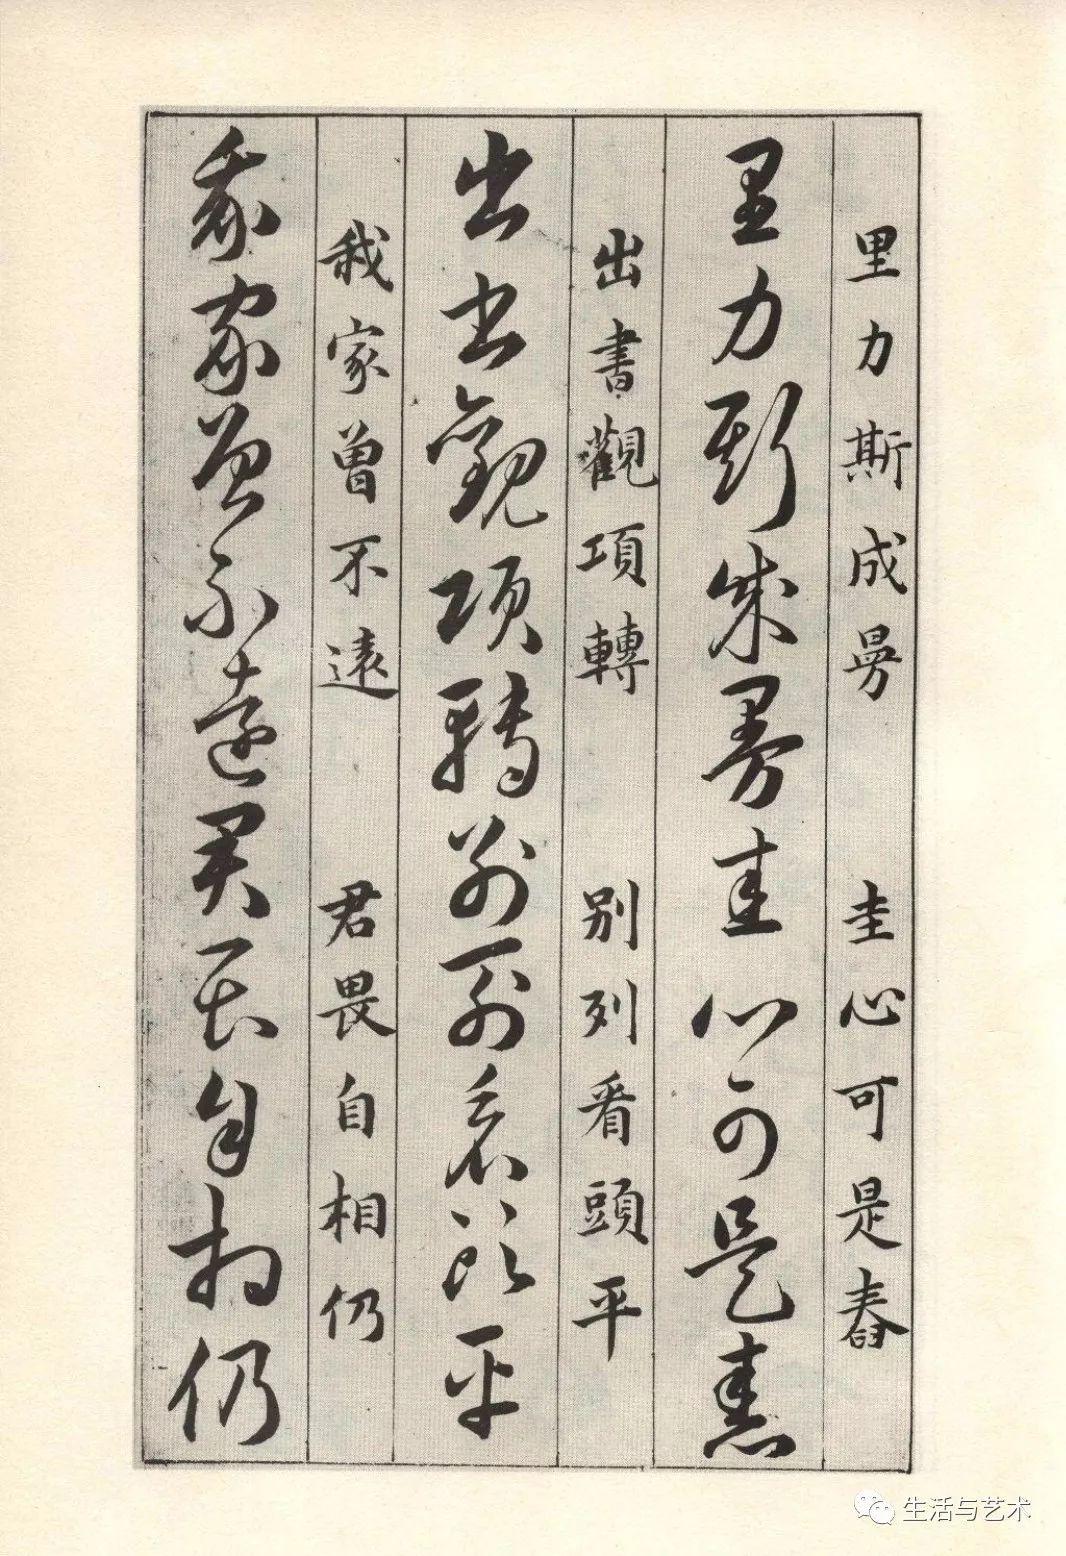 里力斯成曼 圭心可是舂
里力斯成曼圭心可是舂
出書觀項轉 別列看頭平
出書觀項轉別列看頭平
我家曾不遠 君畏自相仍
我家曾不遠君畏自相仍
生活与艺术